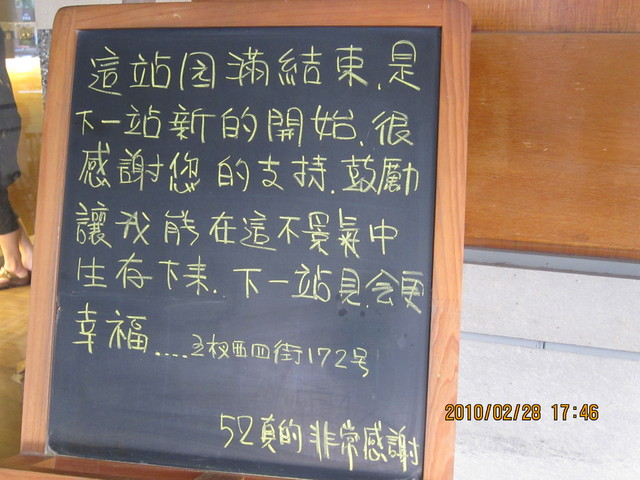 這站圆滿結束.是
下一站新的開始.很
感謝您的支持.鼓勵
讓我能在這不景氣中
生存下來.下一站見.会更
幸福....五权西四街172号
52真的非常感謝
2010/02/28 17:46